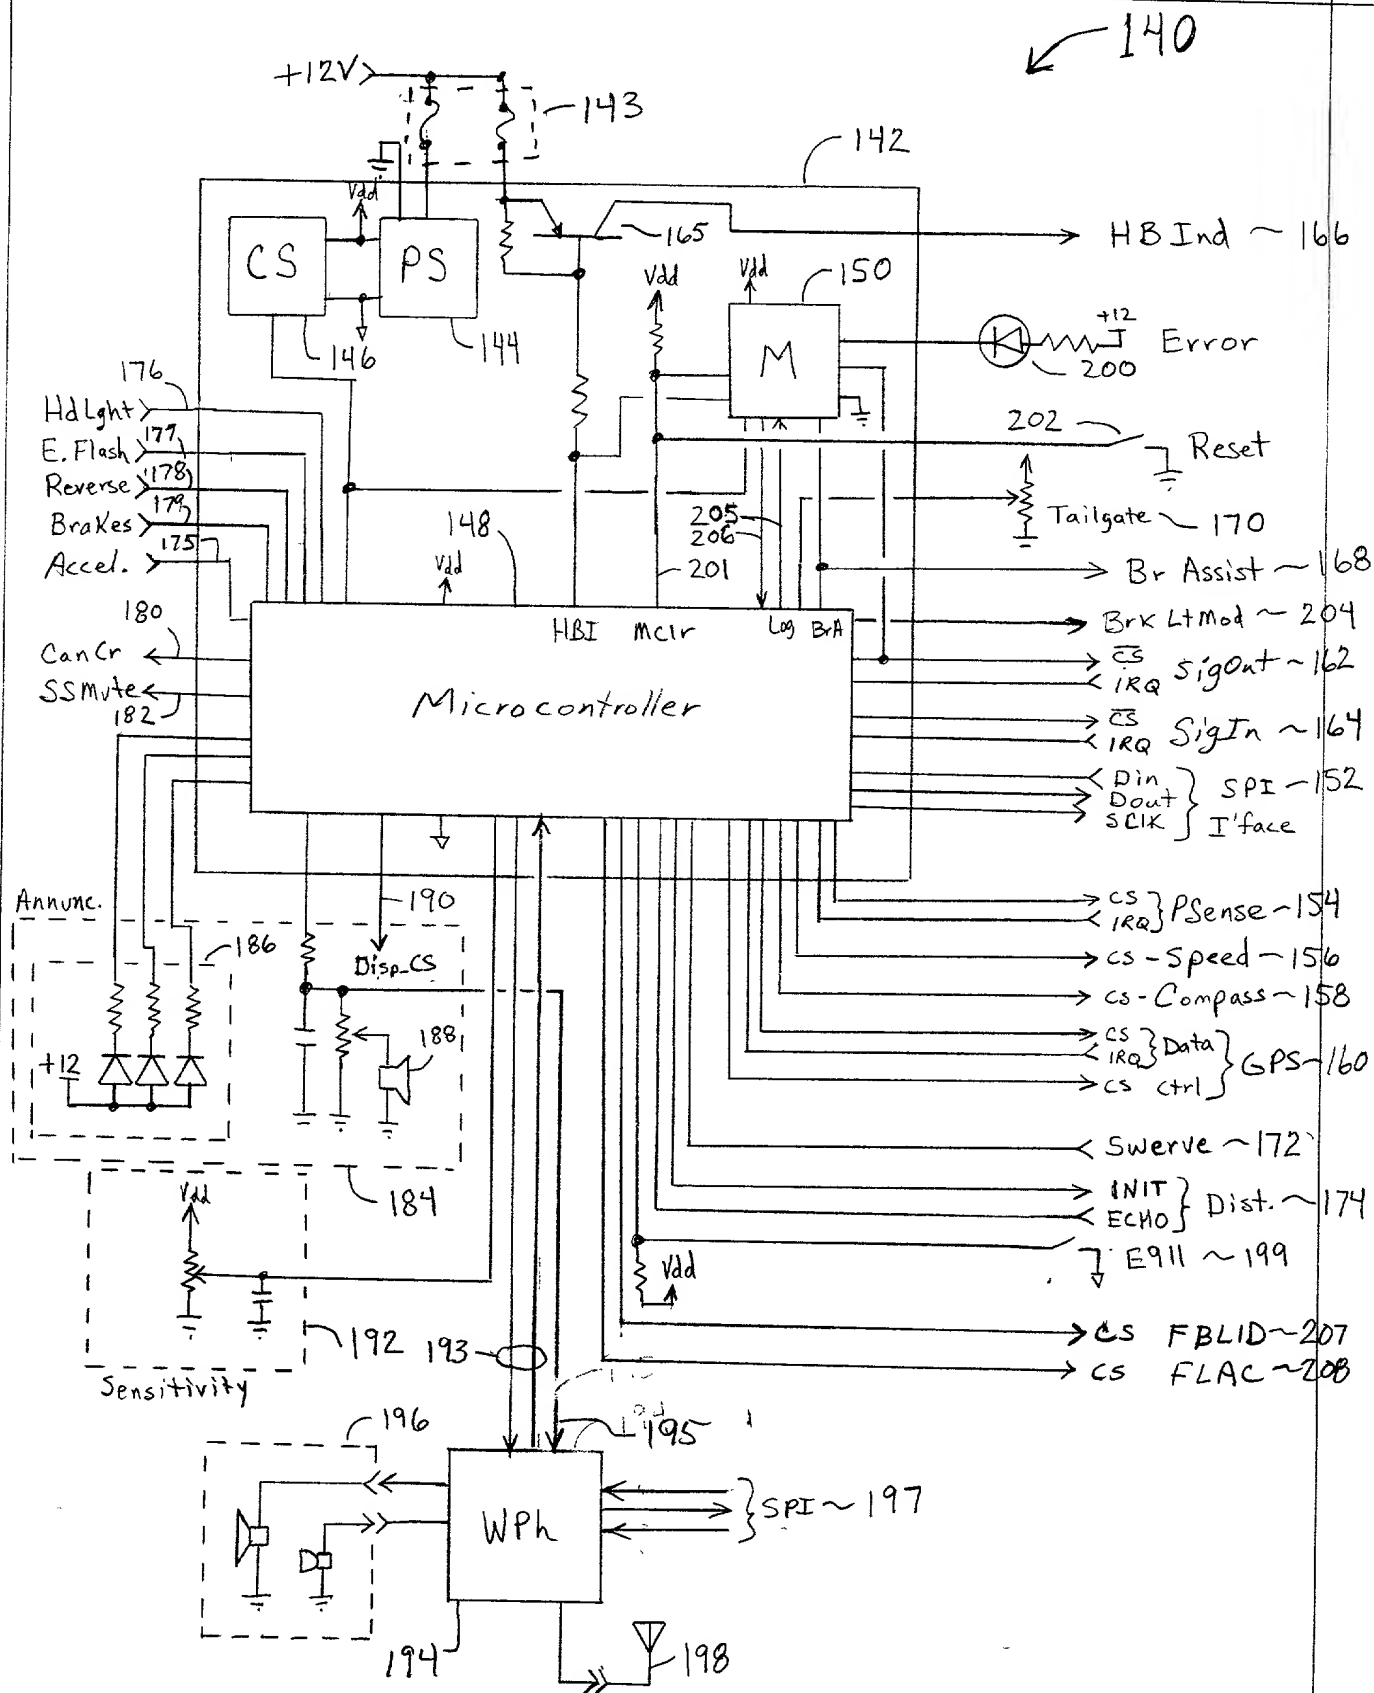 140
+12V
143
142
Vdd
CS
PS
146
144
165
HB Ind ~ 166
Vdd
Vdd
150
M
+12
200
Error
176
HdLght
177
E.Flash
178
Reverse
179
Brakes
175
Accel.
202
Reset
Tailgate ~ 170
148
205
206
201
Vdd
Br Assist ~ 168
HBI
Mclr
Log
BrA
Brk LtMod ~ 204
180
CanCr
SSMute
182
Microcontroller
CS
IRQ
SigOut ~ 162
CS
IRQ
SigIn ~ 164
Din
Dout
SClK
SPI ~ 152
I'face
Annunc.
190
Disp_CS
186
188
+12
184
CS
IRQ
PSense ~ 154
CS - Speed ~ 156
CS - Compass ~ 158
CS
IRQ
Data
CS Ctrl
GPS ~ 160
Swerve ~ 172
INIT
ECHO
Dist. ~ 174
E911 ~ 199
Vdd
Vdd
192
Sensitivity
193
CS FBLID ~ 207
CS FLAC ~ 208
196
195
WPh
SPI ~ 197
194
198